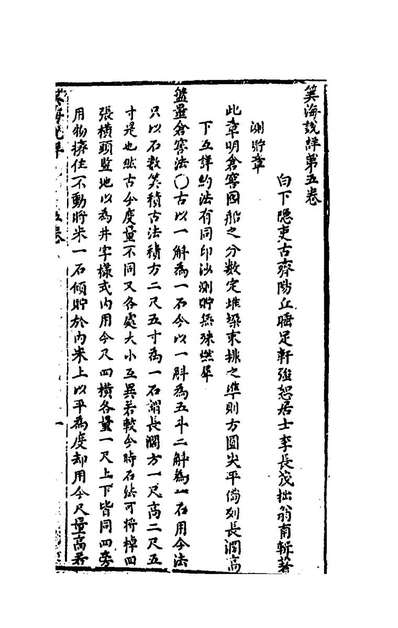 筭海說詳第五卷
白下隱吏古齊陽丘睡足軒強恕居士李長茂拙翁甫輯著
測貯章
此章明倉窖囤船之分數定堆垜束排之準則方圓尖平倘列長濶高
下互詳約法有同印沙測貯無殊燃犀
盤量倉窖法〇古以一斛為一石今以一斛為五斗二斛為一石用今法
只以石數筭積古法積方二尺五寸為一石謂長濶方一尺高二尺五
寸是也然古今度量不同又各處大小互異若較今時石法可將棹四
張橫頭竪地以為井字樣式內用今尺四橫各量一尺上下皆同四旁
用物擠住不動將米一石傾貯於內米上以平為度却用今尺量高若
筭海說詳 五卷 一